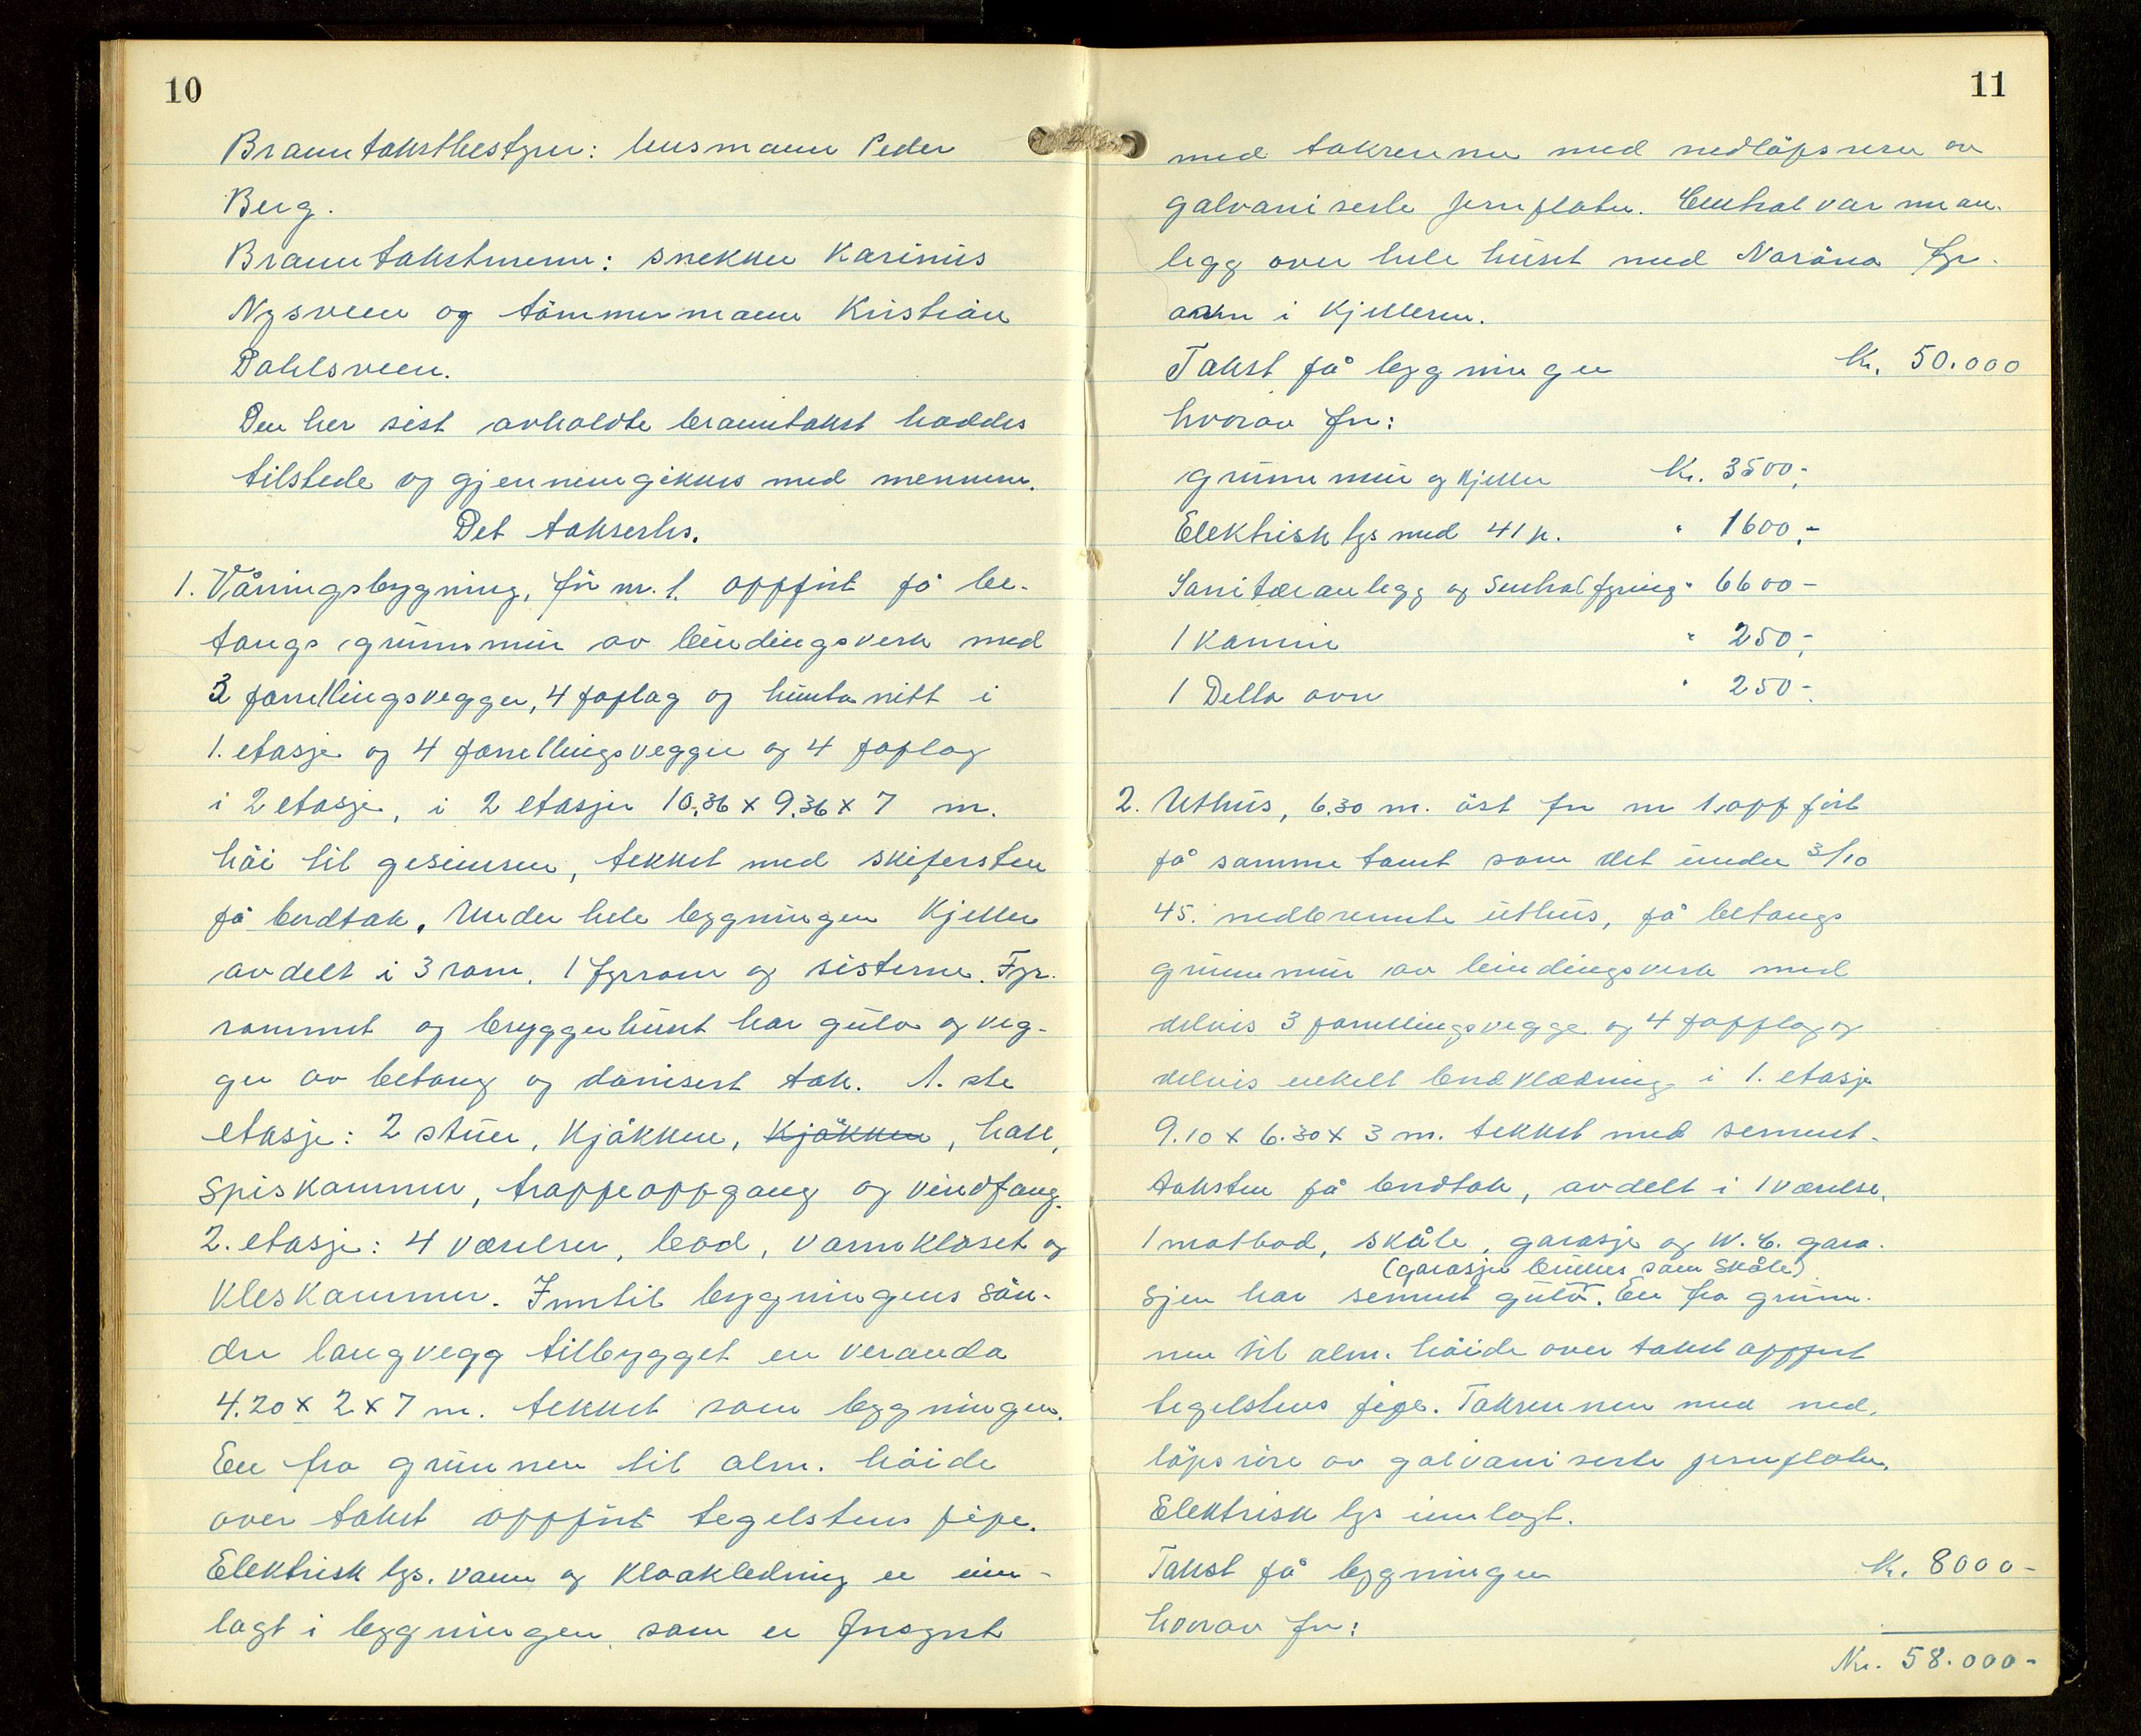 10
Branntakstbestyrer: husmann Peder
Berg.
Branntakstmenn: snekker Karinius
Nysveen og tömmermann Kristian
Dahlsveen.
Den her sist avholdte branntakst haddes
tilstede og gjennemgikkes med mennene.
Det taksertes.
1. Våningsbygning, för nr. 1. oppfört på be-
tongs grunnmur av bindingsverk med
3 panellingsvegger, 4 paplag og huntonitt i
1. etasje og 4 panellingsvegger og 4 paplag
i 2 etasje, i 2 etasjer 10.36 x 9.36 x 7 m.
höi til gesimsen, tekket med skifersten
på bordtak. Under hele bygningen kjeller
avdelt i 3 rom. 1 fyrrom og sisterne. Fyr-
rommet og bryggerhuset har gulv og veg-
ger av betong og donisert tak. 1. ste
etasje: 2 stuer, kjökken, kjökken, hall,
spiskammer, trappeoppgang og vindfang.
2. etasje: 4 værelser, bad, vannkloset og
kleskammer. Inntil bygningens sön-
dre langvegg tilbygget en veranda
4.20 x 2 x 7 m. tekket som bygningen.
En fra grunnen til alm. höide
over taket oppfört tegelstens pipe.
Elektrisk lys. vann og kloakledning er inn-
lagt i bygningen som er forsynt
11
med takrenner med nedlöpsrör av
galvaniserte jernplater. Centralvarmean-
legg over hele huset med Noröna fyr-
ovn i kjelleren.
Takst på bygningen Kr. 50.000
hvorav for:
grunnmur og kjeller Kr. 3500,-
Elektrisk lys med 41 p. " 1600,-
Sanitæranlegg og sentralfyring " 6600-
1 kamin " 250,-
1 Della ovn " 250-.
2. Uthus, 6.30 m. öst for nr 1, oppfört
på samme tomt som det under 3/10
45. nedbrennte uthus, på betongs
grunnmur av bindingsverk med
delvis 3 panellingsvegger og 4 papplag og
delvis enkelt bordklædning i 1. etasje
9.10 x 6.30 x 3 m. tekket med sement-
taksten på bordtak, avdelt i 1 værelse,
1 matbod, skåle, garasje og W. C. gara-
(garasjen brukes som skåle)
sjen har sement gulv. En fra grunn-
nen til alm. höide over taket oppfört
tegelstens pipe. Takrennen med ned-
löpsrör av galvaniserte jernplater.
Elektrisk lys innlagt.
Takst på bygningen Kr. 8000-
hvorav for:
Kr. 58.000-